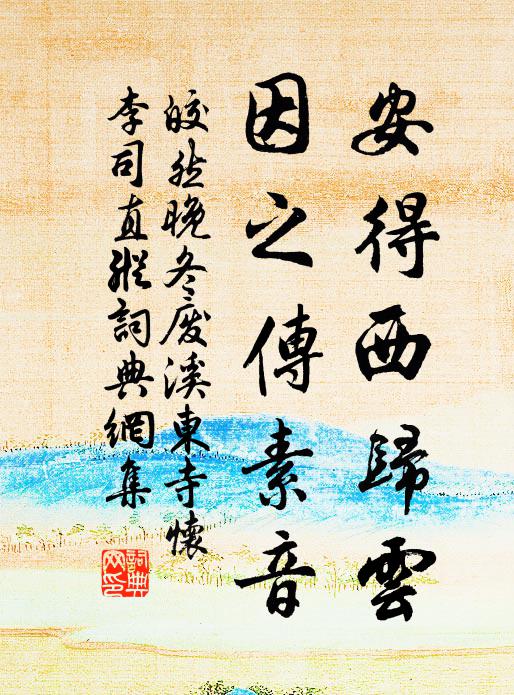 安得西歸雲
因之傳素音
皎然晚冬廢溪東寺懷
李司直縱詞典網集
詞典